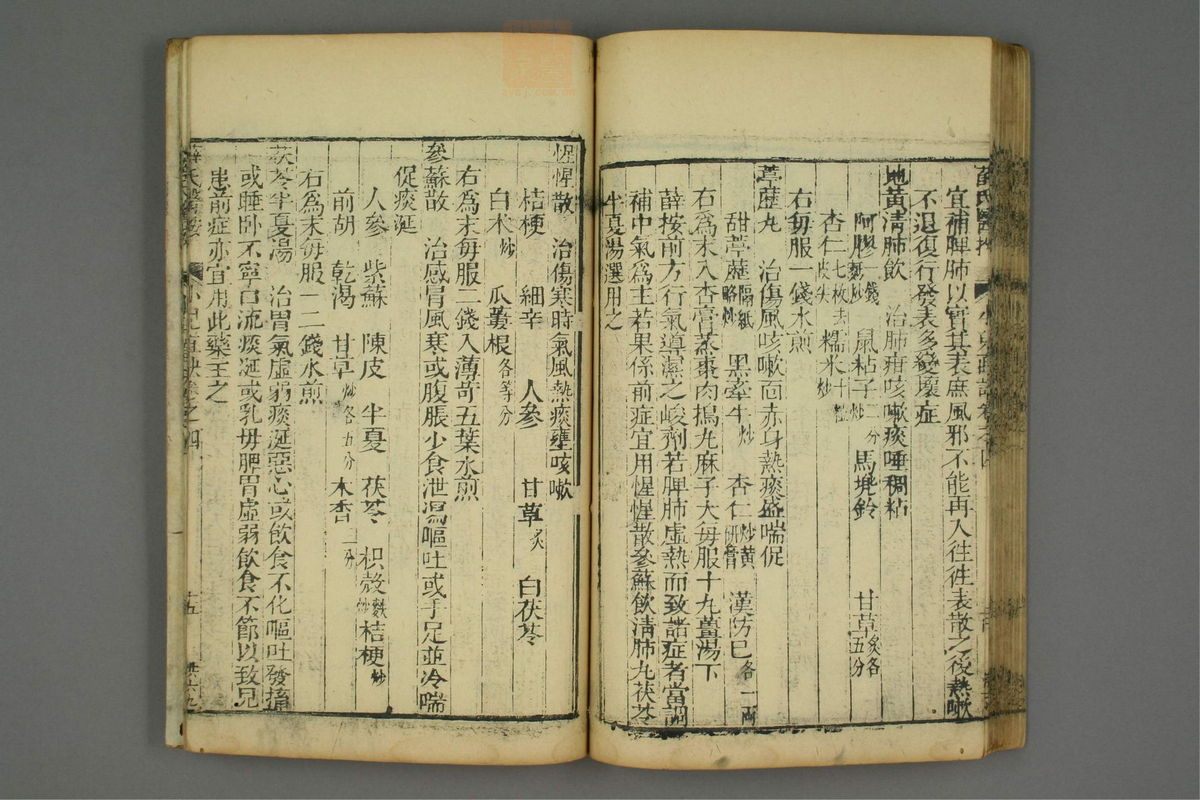 宜補脾肺以實其表庶風邪不能再入徃徃表散之後熱嗽
不退復行發表多變壞症
地黃清肺飲　治肺疳咳嗽痰唾稠粘
阿膠一錢麩炒　鼠粘子二分炒　馬兜鈴　甘草炙各五分
杏仁七枚去皮尖　糯米十粒炒
右每服一錢水煎
葶藶丸　治傷風咳嗽面赤身熱痰盛喘促
甜葶藶隔紙略炒　黑牽牛炒　杏仁炒黃研膏　漢防巳各一兩
右爲末入杏膏蒸棗肉搗丸麻子大每服十丸薑湯下
薛按前方行氣導濕之峻劑若脾肺虛熱而致諸症者當調
補中氣爲主若果係前症宜用惺惺散參蘇飲清肺丸茯苓
半夏湯選用之
惺惺散　治傷寒時氣風熱痰壅咳嗽
桔梗　細辛　人參　甘草炙　白茯苓
白术炒　瓜蔞根各等分
右爲末每服二錢入薄荷五葉水煎
參蘇散　治感冒風寒或腹脹少食泄瀉嘔吐或手足並冷喘
促痰涎
人參　紫蘇　陳皮　半夏　茯苓　枳殼麩炒　桔梗炒
前胡　乾渴　甘草炒各五分　木香二分
右爲末每服一二錢水煎
茯苓半夏湯　治胃氣虛弱痰涎惡心或飲食不化嘔吐發搐
或睡卧不寧口流痰涎或乳母脾胃虛弱飲食不節以致兒
患前症亦宜用此藥主之
薛氏醫按
十五